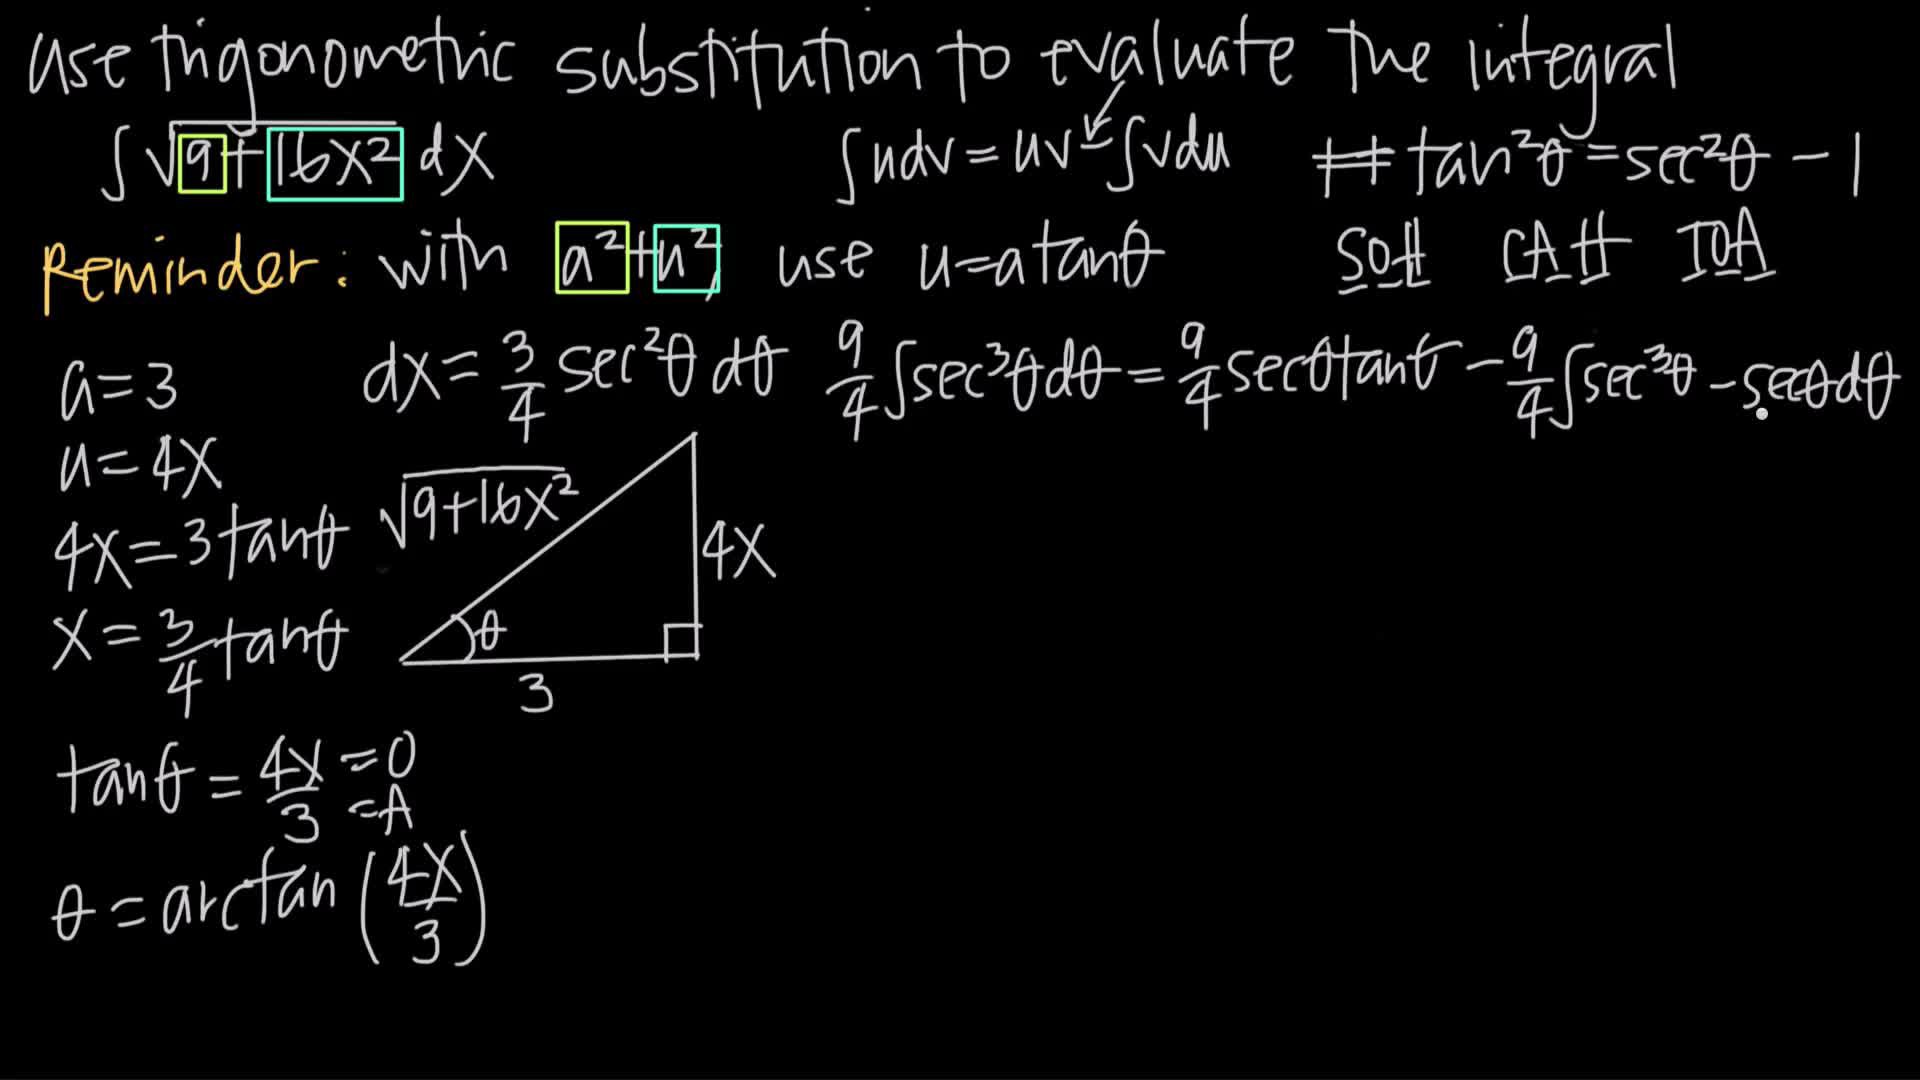 use trigonometric substitution to evaluate the integral
∫ √9+16x² dx
∫udv = uv - ∫vdu
## tan²θ = sec²θ - 1
Reminder: with a²+u², use u=a tanθ
SOH CAH TOA
a=3
dx = 3/4 sec²θ dθ
9/4 ∫sec³θdθ = 9/4 secθtanθ - 9/4 ∫sec³θ - secθdθ
u=4x
4x=3tanθ
√9+16x²
4x
x = 3/4 tanθ
θ
3
tanθ = 4x/3 =O =A
θ = arctan (4x/3)